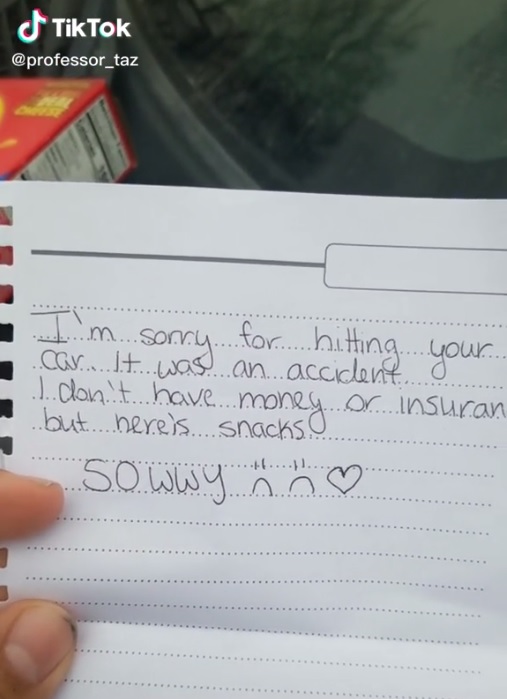 TikTok
@professor_taz
REAL
CHEESE
I'm sorry for hitting your
car. It was an accident.
I don't have money or insuran
but here's snacks!
SOWWY ♡